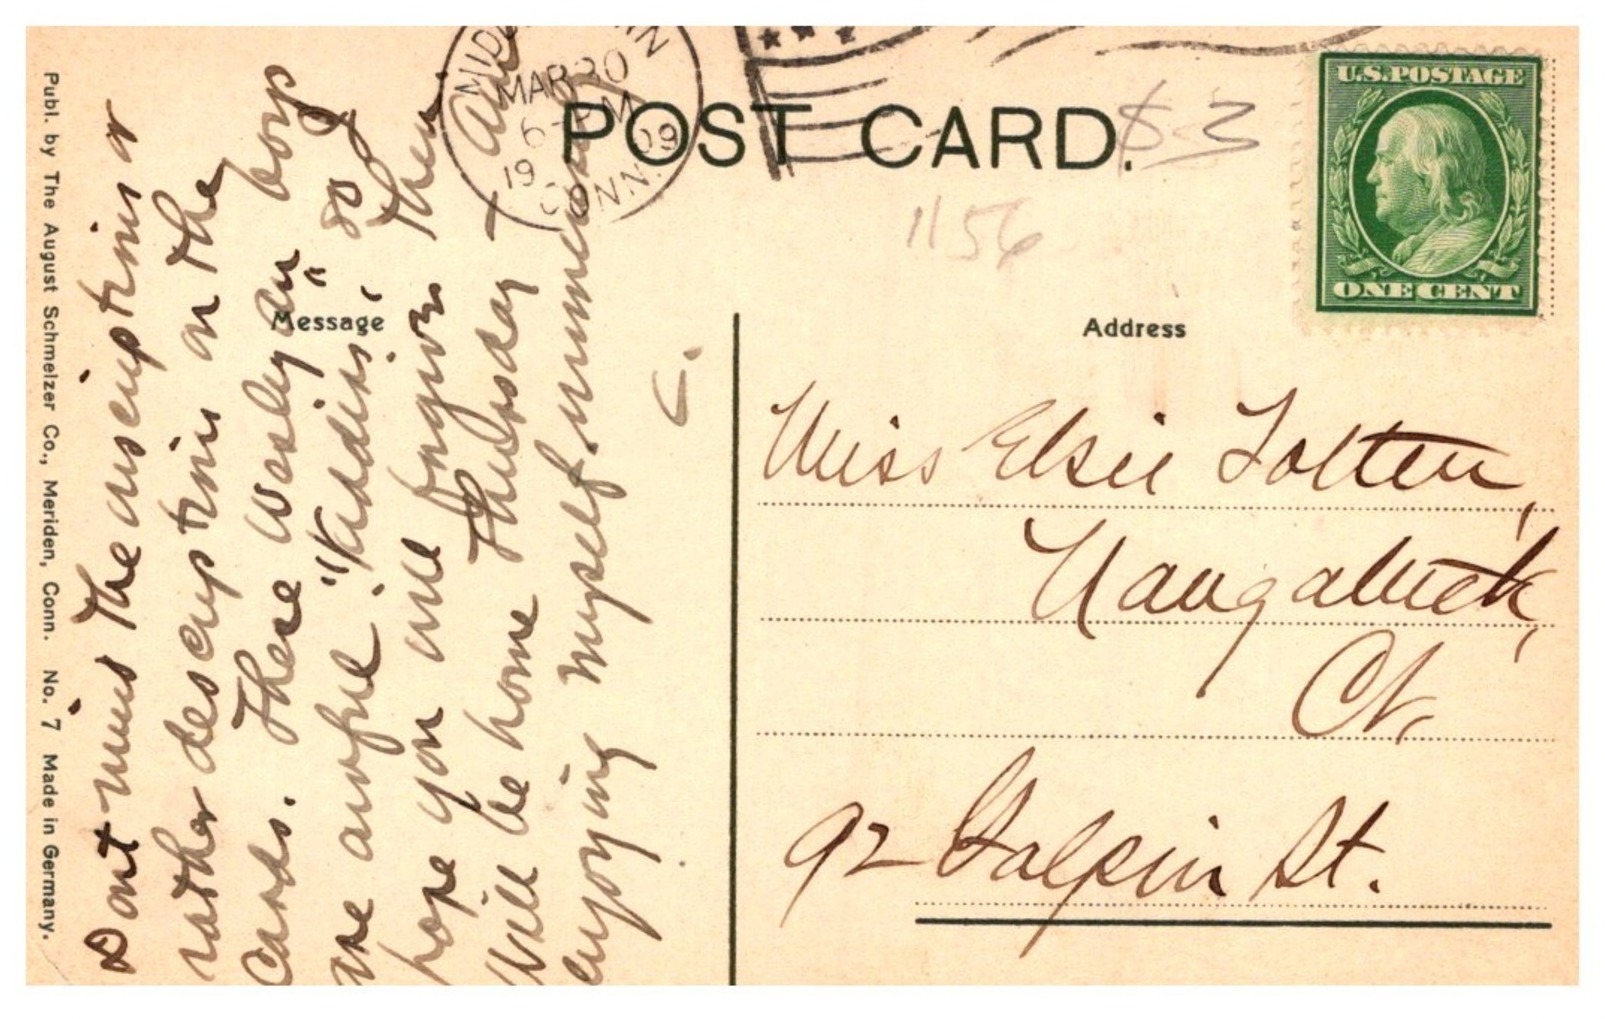 Publ. by The August Schmelzer Co., Meriden, Conn. No. 7 Made in Germany.
POST CARD.
MAR 30
6 - PM
1909
CONN.
$3
1156
U.S. POSTAGE
ONE CENT
Message
Address
Dont miss the inscriptions or
rather descriptions on the
Cards. These Wesleyan boys
are awful "Kiddies," so I
hope you will forgive them
Will be home Thursday - am
enjoying myself immensely
C.
Miss Elsie Totten,
Naugatuck,
Ct,
92 Galpin St.